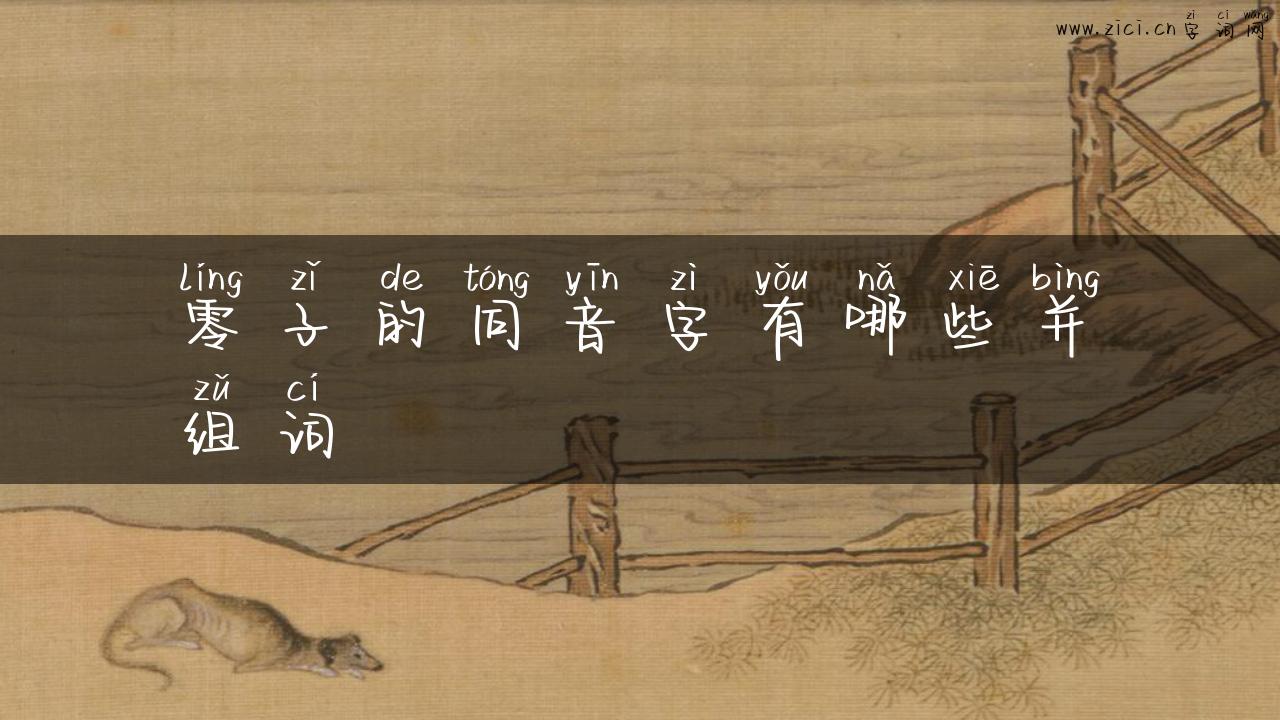 zì cí wǎng
www.zici.cn 字词网
líng zǐ de tóng yīn zì yǒu nǎ xiē bìng
零子的同音字有哪些并
zǔ cí
组词